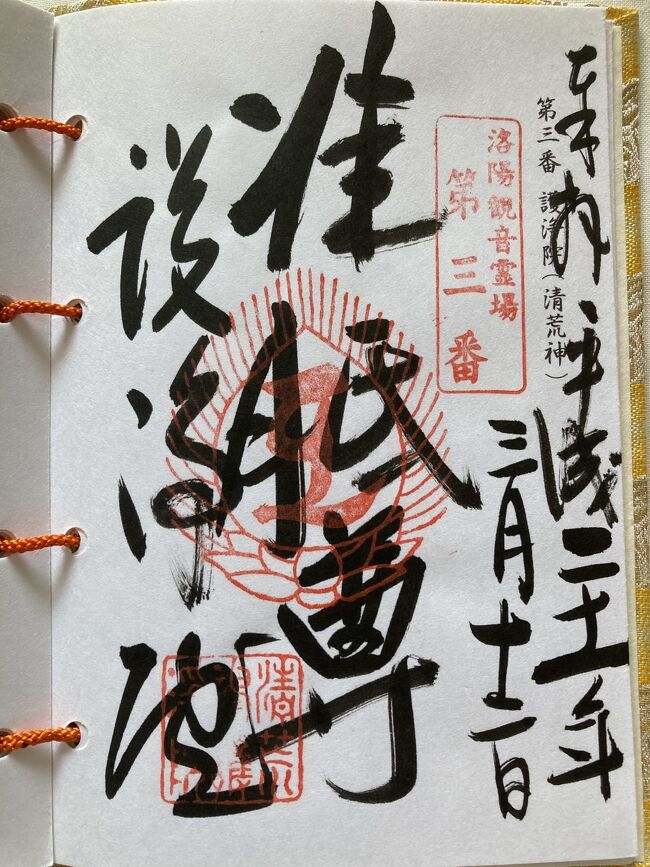 奉拝 平成二十一年
三月十二日
第三番 護浄院(清荒神)
洛陽観音霊場
第三番
准胝尊
護浄院